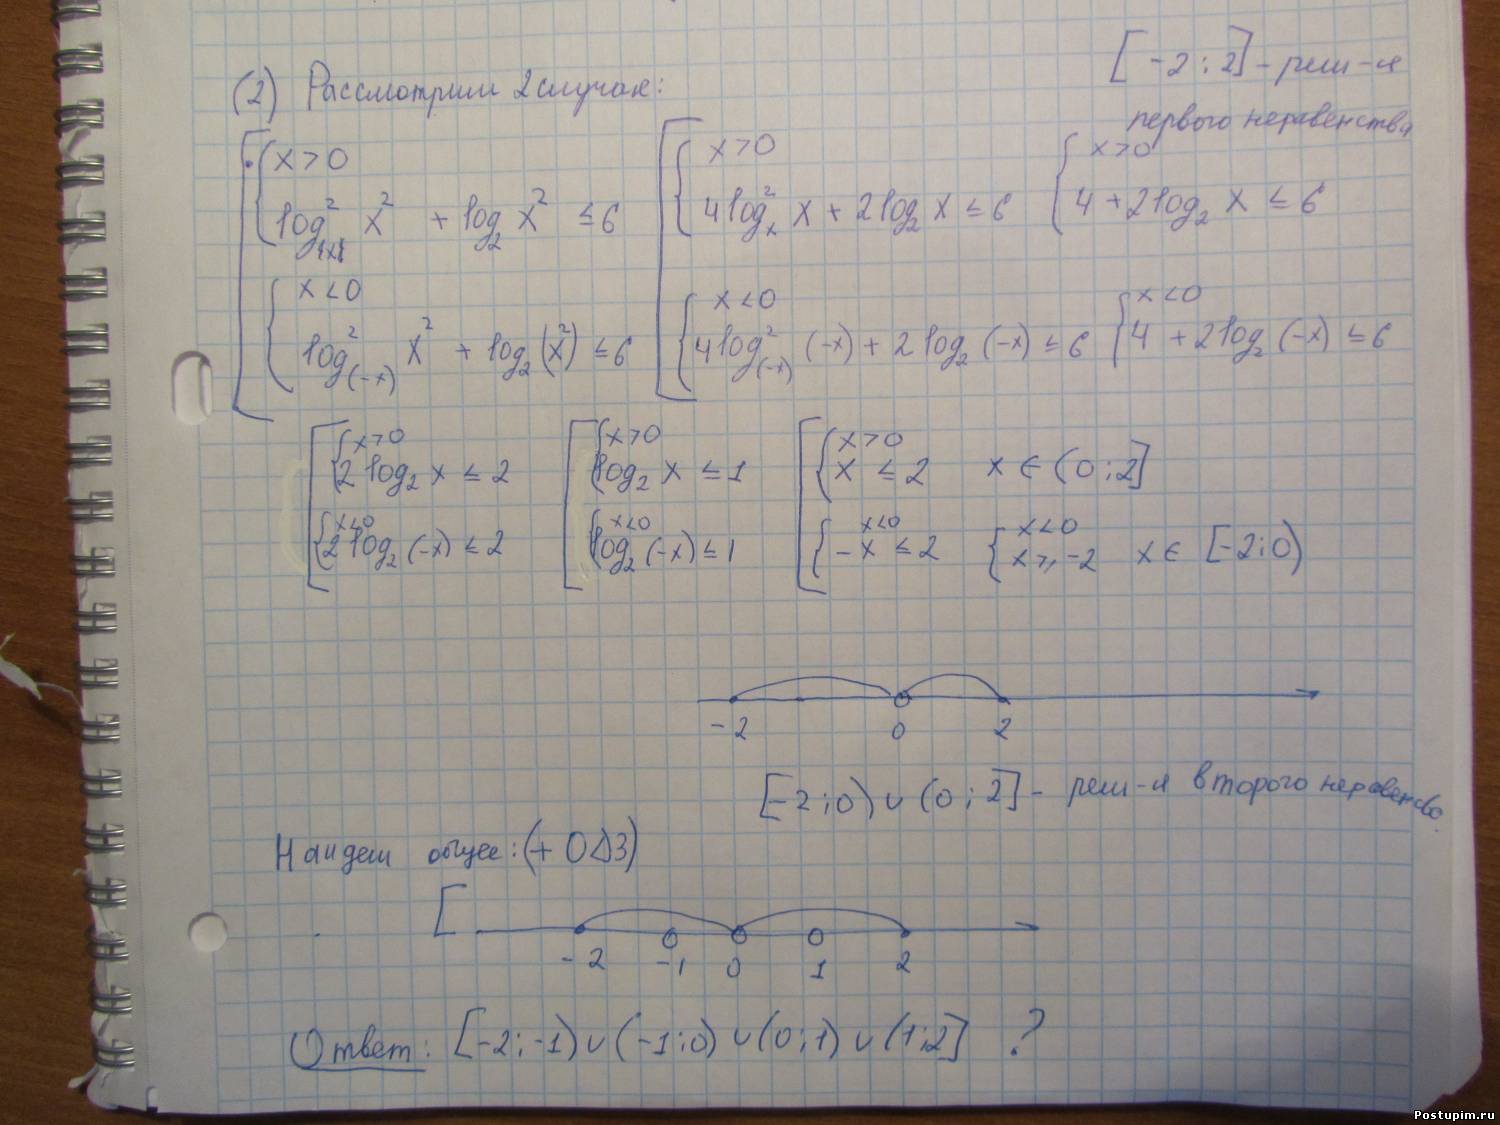 [-2; 2] - реш-я
первого неравенства
(2) Рассмотрим 2 случая:
x > 0
log²|x| x² + log₂ x² ≤ 6
x < 0
log²(-x) x² + log₂(x²) ≤ 6
x > 0
4log²ₓ x + 2log₂ x ≤ 6
x < 0
4log²(-x) (-x) + 2log₂ (-x) ≤ 6
x > 0
4 + 2log₂ x ≤ 6
x < 0
4 + 2log₂ (-x) ≤ 6
x > 0
2 log₂ x ≤ 2
x < 0
2 log₂ (-x) ≤ 2
x > 0
log₂ x ≤ 1
x < 0
log₂ (-x) ≤ 1
x > 0
x ≤ 2 x ∈ (0; 2]
x < 0
-x ≤ 2
x < 0
x ≥ -2 x ∈ [-2; 0)
-2 0 2
[-2; 0) ∪ (0; 2] - реш-я второго неравенства.
Найдем общее: (+ ОДЗ)
[
-2 -1 0 1 2
Ответ: [-2; -1) ∪ (-1; 0) ∪ (0; 1) ∪ (1; 2] ?
Postupim.ru